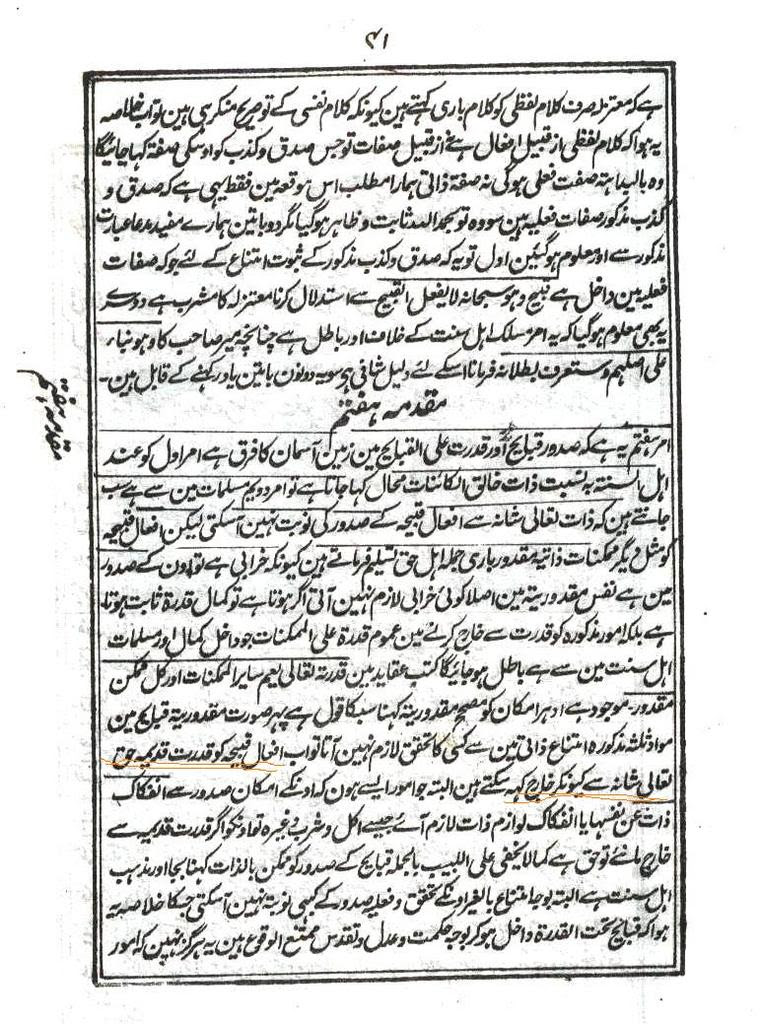 ۴۱
ہے کہ معتزلہ صرف کلام لفظی کو کلام باری کہتے ہین کیونکہ کلام نفسی کے تو صریح منکر ہی ہین تو اب خلاصہ
یہ ہوا کہ کلام لفظی از قبیل افعال ہے نہ از قبیل صفات تو جس صدق و کذب کو اوسکی صفۃ کہا جائیگا
وہ بالبداہتہ صفت فعلی ہوگی نہ صفۃ ذاتی ہمارا مطلب اس موقعہ مین فقط یہی ہے کہ صدق و
کذب مذکور صفات فعلیہ ہین سو وہ تو بحمد اللہ ثابت و ظاہر ہوگیا مگر دو باتین ہمارے مفید مدعا عبارت
مذکور سے اور معلوم ہوگئین اول تو یہ کہ صدق و کذب مذکور کے ثبوت امتناع کے لئے جو کہ صفات
فعلیہ مین داخل ہے قبیح وہو سبحانہ لا یفعل القبیح سے استدلال کرنا معتزلہ کا مشرب ہے دوسرے
یہ بھی معلوم ہوگیا کہ یہ امر مسلک اہل سنت کے خلاف اور باطل ہے چنانچہ میر صاحب کا وہو بناء
علی اصلہم وستعرف بطلانہ فرمانا اسکے لئے دلیل شافی ہی سو یہ دونون باتین یاد رکھنے کے قابل ہین۔
مقدمہ ہفتم
امر ہفتم یہ ہے کہ صدور قبایح اور قدرت علی القبایح مین زمین آسمان کا فرق ہے امر اول کو عند
اہل السنتہ بہ نسبت ذات خالق الکائنات محال کہا جاتا ہے تو امر دویم مسلمات مین سے ہے سب
جانتے ہین کہ ذات تعالی شانہ سے افعال قبیحہ کے صدور کی نوبت نہین آسکتی لیکن افعال قبیحہ
کو مثل دیگر ممکنات ذاتیہ مقدور باری جملہ اہل حق تسلیم فرماتے ہین کیونکہ خرابی ہے تو اون کے صدور
مین ہے نفس مقدوریۃ مین اصلا کوئی خرابی لازم نہین آتی اگر ہوتا ہے تو کمال قدرۃ ثابت ہوتا
ہے بلکہ امور مذکورہ کو قدرت سے خارج کرنے مین عموم قدرۃ علی الممکنات جو داخل کمال اور مسلمات
اہل سنت مین سے ہے باطل ہو جائیگا کتب عقاید مین قدرتہ تعالی یعم سایر الممکنات اور کل ممکن
مقدور۔ موجود ہے ادہر امکان کو مصحح مقدوریۃ کہنا سب کا قول ہے بہر صورت مقدوریۃ قبایح مین
مواد ثلثہ مذکورہ امتناع ذاتی مین سے کسی کا تحقق لازم نہین آتا تو اب افعال قبیحہ کو قدرت قدیمہ حق
تعالی شانہ سے کیونکر خارج کہہ سکتے ہین البتہ جو امور ایسے ہون کہ اونکے امکان صدور سے انفکاک
ذات عن نفسہا یا انفکاک لوازم ذات لازم آئے جیسے اکل و شرب وغیرہ تو اونکو اگر قدرت قدیمہ سے
خارج مانئے تو حق ہے کما لا یخفی علی اللبیب بالجملہ قبایح کے صدور کو ممکن بالذات کہنا بجا اور مذہب
اہل سنت ہے البتہ بوجہ امتناع بالغیر اونکے تحقق و فعلیہ صدور کے کبھی نوبتہ نہین آسکتی جسکا خلاصہ یہ
ہوا کہ قبایح تحت القدرۃ داخل ہو کر بوجہ حکمت و عدل و تقدس ممتنع الوقوع ہین یہ ہرگز نہین کہ امور